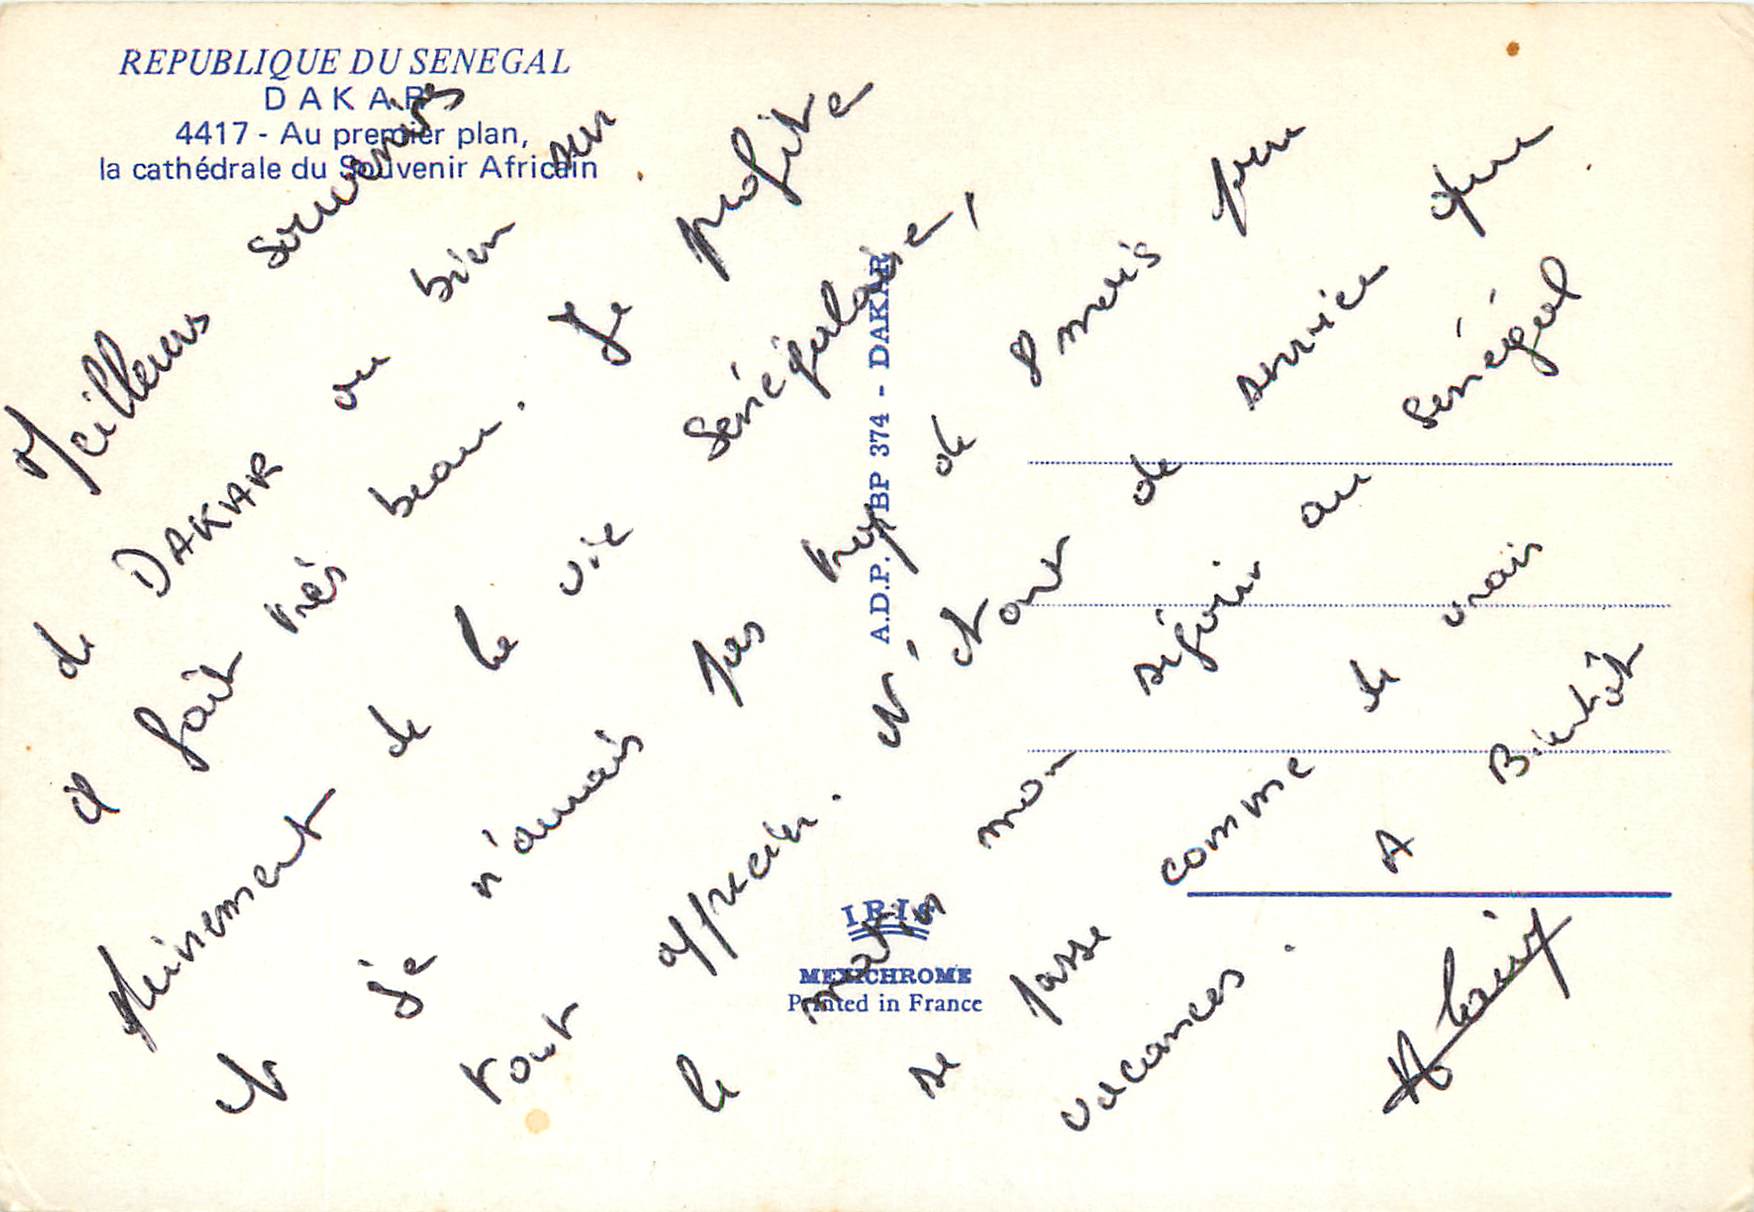 REPUBLIQUE DU SENEGAL
DAKAR
4417 - Au premier plan,
la cathédrale du Souvenir Africain
Meilleurs souvenirs
de DAKAR ou bien sur
il fait très beau. Je profite
pleinement de la vie sénégalaise,
et je n'aurais pas trop de 8 mois pour
tout apprécier. N'étant de service que
le matin mon séjour au Sénégal
se passe comme de vrais
vacances. A Bientôt
Alain
A.D.P. BP 374 - DAKAR
IRIS
MEXICHROME
Printed in France